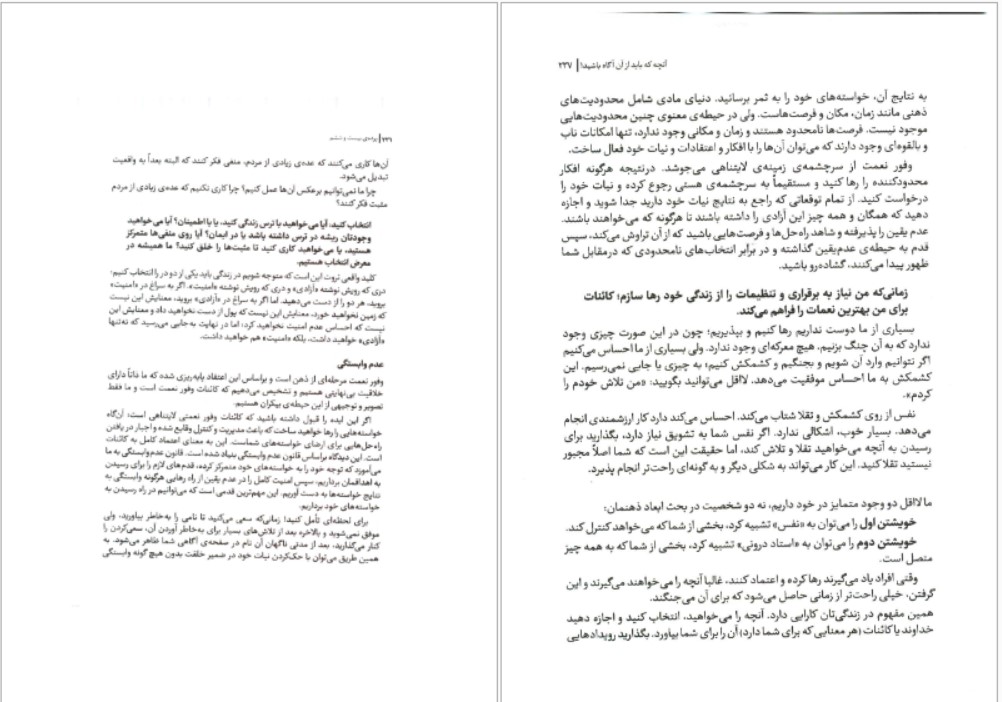 ۲۳۶ | پرده‌ی بیست و ششم
آن‌ها کاری می‌کنند که عده‌ی زیادی از مردم، منفی فکر کنند که البته بعداً به واقعیت
تبدیل می‌شود.
چرا ما نمی‌توانیم برعکس آن‌ها عمل کنیم؟ چرا کاری نکنیم که عده‌ی زیادی از مردم
مثبت فکر کنند؟
انتخاب کنید، آیا می‌خواهید با ترس زندگی کنید، یا با اطمینان؟ آیا می‌خواهید
وجودتان ریشه در ترس داشته باشد یا در ایمان؟ آیا روی منفی‌ها متمرکز
هستید، یا می‌خواهید کاری کنید تا مثبت‌ها را خلق کنید؟ ما همیشه در
معرض انتخاب هستیم.
کلید واقعی ثروت این است که متوجه شویم در زندگی باید یکی از دو در را انتخاب کنیم؛
دری که رویش نوشته «آزادی» و دری که رویش نوشته «امنیت». اگر به سراغ در «امنیت»
بروید، هر دو را از دست می‌دهید. اما اگر به سراغ در «آزادی» بروید، معنایش این نیست
که زمین نخواهید خورد، معنایش این نیست که پول از دست نخواهید داد و معنایش این
نیست که احساس عدم امنیت نخواهید کرد؛ اما در نهایت به‌جایی می‌رسید که نه‌تنها
«آزادی» خواهید داشت، بلکه «امنیت» هم خواهید داشت.
عدم وابستگی
وفور نعمت مرحله‌ای از ذهن است و براساس این اعتقاد پایه‌ریزی شده که ما ذاتاً دارای
خلاقیت بی‌نهایتی هستیم و تشخیص می‌دهیم که کائنات وفور نعمت است و ما فقط
تصویر و توجیهی از این حیطه‌ی بیکران هستیم.
اگر این ایده را قبول داشته باشید که کائنات وفور نعمتی لایتناهی است؛ آن‌گاه
خواسته‌هایی را رها خواهید ساخت که باعث مدیریت و کنترل وقایع شده و اجبار در یافتن
راه‌حل‌هایی برای ارضای خواسته‌های شماست. این به معنای اعتماد کامل به کائنات
است. این دیدگاه براساس قانون عدم وابستگی بنیاد شده است. قانون عدم‌وابستگی به ما
می‌آموزد که توجه خود را به خواسته‌های خود متمرکز کرده، قدم‌های لازم را برای رسیدن
به اهدافمان برداریم، سپس امنیت کامل را در عدم یقین از راه رهایی هرگونه وابستگی به
نتایج خواسته‌ها به دست آوریم. این مهم‌ترین قدمی است که می‌توانیم در راه رسیدن به
خواسته‌های خود برداریم.
برای لحظه‌ای تأمل کنید! زمانی‌که سعی می‌کنید تا نامی را به‌خاطر بیاورید، ولی
موفق نمی‌شوید و بالاخره بعد از تلاش‌های بسیار برای به‌خاطر آوردن آن، سعی‌کردن را
کنار می‌گذارید، بعد از مدتی ناگهان آن نام در صفحه‌ی آگاهی شما ظاهر می‌شود. به
همین طریق می‌توان با حک‌کردن نیات خود در ضمیر خلقت بدون هیچ گونه وابستگی
آنچه که باید از آن آگاه باشید! | ۲۳۷
به نتایج آن، خواسته‌های خود را به ثمر برسانید. دنیای مادی شامل محدودیت‌های
ذهنی مانند زمان، مکان و فرصت‌هاست. ولی در حیطه‌ی معنوی چنین محدودیت‌هایی
موجود نیست. فرصت‌ها نامحدود هستند و زمان و مکانی وجود ندارد، تنها امکانات ناب
و بالقوه‌ای وجود دارند که می‌توان آن‌ها را با افکار و اعتقادات و نیات خود فعال ساخت.
وفور نعمت از سرچشمه‌ی زمینه‌ی لایتناهی می‌جوشد. درنتیجه هرگونه افکار
محدودکننده را رها کنید و مستقیماً به سرچشمه‌ی هستی رجوع کرده و نیات خود را
درخواست کنید. از تمام توقعاتی که راجع به نتایج نیات خود دارید جدا شوید و اجازه
دهید که همگان و همه چیز این آزادی را داشته باشند تا هرگونه که می‌خواهند باشند.
عدم یقین را پذیرفته و شاهد راه‌حل‌ها و فرصت‌هایی باشید که از آن تراوش می‌کند، سپس
قدم به حیطه‌ی عدم‌یقین گذاشته و در برابر انتخاب‌های نامحدودی که درمقابل شما
ظهور پیدا می‌کنند، گشاده‌رو باشید.
زمانی‌که من نیاز به برقراری و تنظیمات را از زندگی خود رها سازم؛ کائنات
برای من بهترین نعمات را فراهم می‌کند.
بسیاری از ما دوست نداریم رها کنیم و بپذیریم؛ چون در این صورت چیزی وجود
ندارد که به آن چنگ بزنیم. هیچ معرکه‌ای وجود ندارد. ولی بسیاری از ما احساس می‌کنیم
اگر نتوانیم وارد آن شویم و بجنگیم و کشمکش کنیم؛ به چیزی یا جایی نمی‌رسیم. این
کشمکش به ما احساس موفقیت می‌دهد. لااقل می‌توانید بگویید: «من تلاش خودم را
کردم».
نفس از روی کشمکش و تقلا شتاب می‌کند. احساس می‌کند دارد کار ارزشمندی انجام
می‌دهد. بسیار خوب، اشکالی ندارد. اگر نفس شما به تشویق نیاز دارد، بگذارید برای
رسیدن به آنچه می‌خواهید تقلا و تلاش کند، اما حقیقت این است که شما اصلاً مجبور
نیستید تقلا کنید. این کار می‌تواند به شکلی دیگر و به گونه‌ای راحت‌تر انجام پذیرد.
ما لااقل دو وجود متمایز در خود داریم، نه دو شخصیت در بحث ابعاد ذهنمان:
خویشتن اول را می‌توان به «نفس» تشبیه کرد، بخشی از شما که می‌خواهد کنترل کند.
خویشتن دوم را می‌توان به «استاد درونی» تشبیه کرد، بخشی از شما که به همه چیز
متصل است.
وقتی افراد یاد می‌گیرند رها کرده و اعتماد کنند، غالباً آنچه را می‌خواهند می‌گیرند و این
گرفتن، خیلی راحت‌تر از زمانی حاصل می‌شود که برای آن می‌جنگند.
همین مفهوم در زندگی‌تان کارایی دارد. آنچه را می‌خواهید، انتخاب کنید و اجازه دهید
خداوند یا کائنات (هر معنایی که برای شما دارد) آن را برای شما بیاورد. بگذارید رویدادهایی